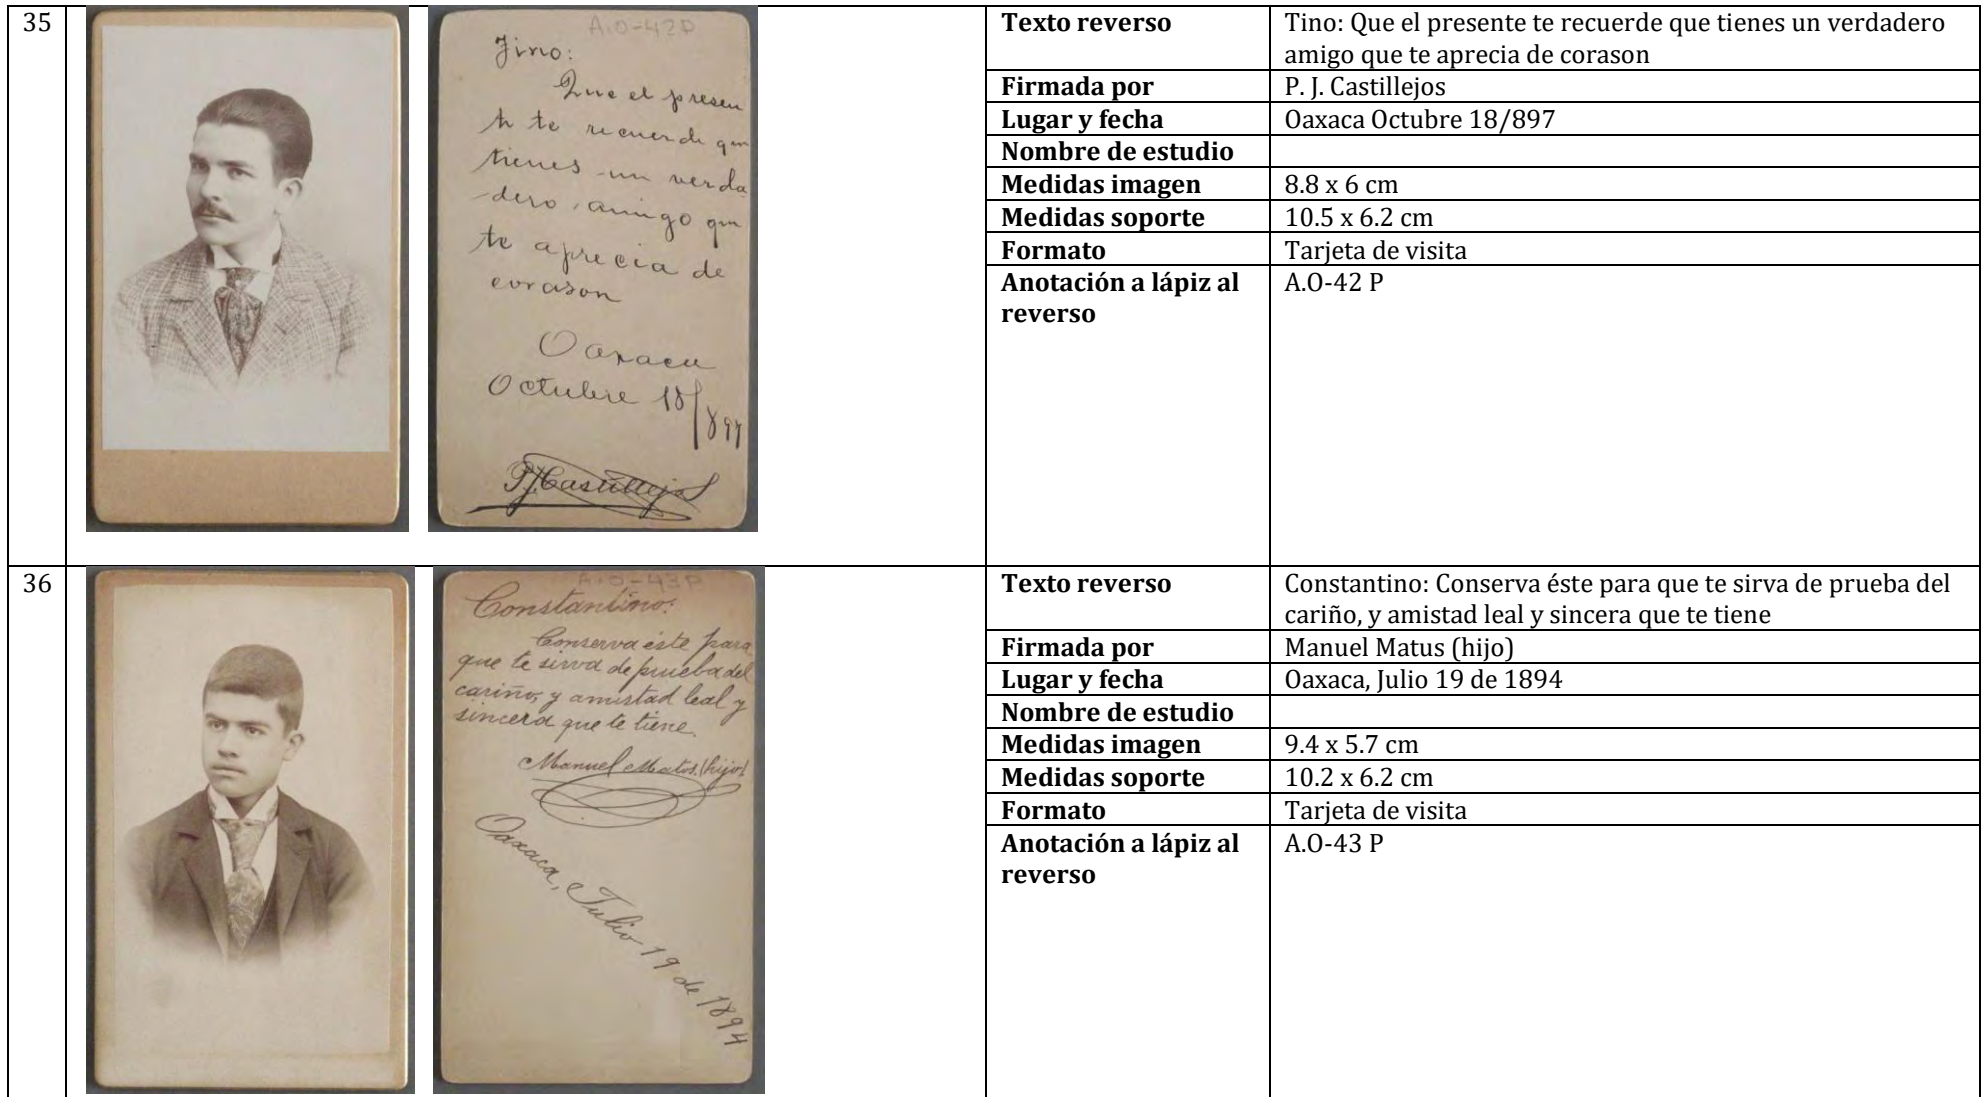 35
A.O-42P
Tino:
Que el presen
te te recuerde que
tienes un verda
dero amigo que
te aprecia de
corason
Oaxaca
Octubre 18/897
P. J. Castillejos
Texto reverso
Tino: Que el presente te recuerde que tienes un verdadero
amigo que te aprecia de corason
Firmada por
P. J. Castillejos
Lugar y fecha
Oaxaca Octubre 18/897
Nombre de estudio
Medidas imagen
8.8 x 6 cm
Medidas soporte
10.5 x 6.2 cm
Formato
Tarjeta de visita
Anotación a lápiz al
reverso
A.O-42 P
36
A.O-43P
Constantino:
Conserva éste para
que te sirva de prueba del
cariño, y amistad leal y
sincera que te tiene.
Manuel Matos. (hijo)
Oaxaca, Julio 19 de 1894
Texto reverso
Constantino: Conserva éste para que te sirva de prueba del
cariño, y amistad leal y sincera que te tiene
Firmada por
Manuel Matus (hijo)
Lugar y fecha
Oaxaca, Julio 19 de 1894
Nombre de estudio
Medidas imagen
9.4 x 5.7 cm
Medidas soporte
10.2 x 6.2 cm
Formato
Tarjeta de visita
Anotación a lápiz al
reverso
A.O-43 P